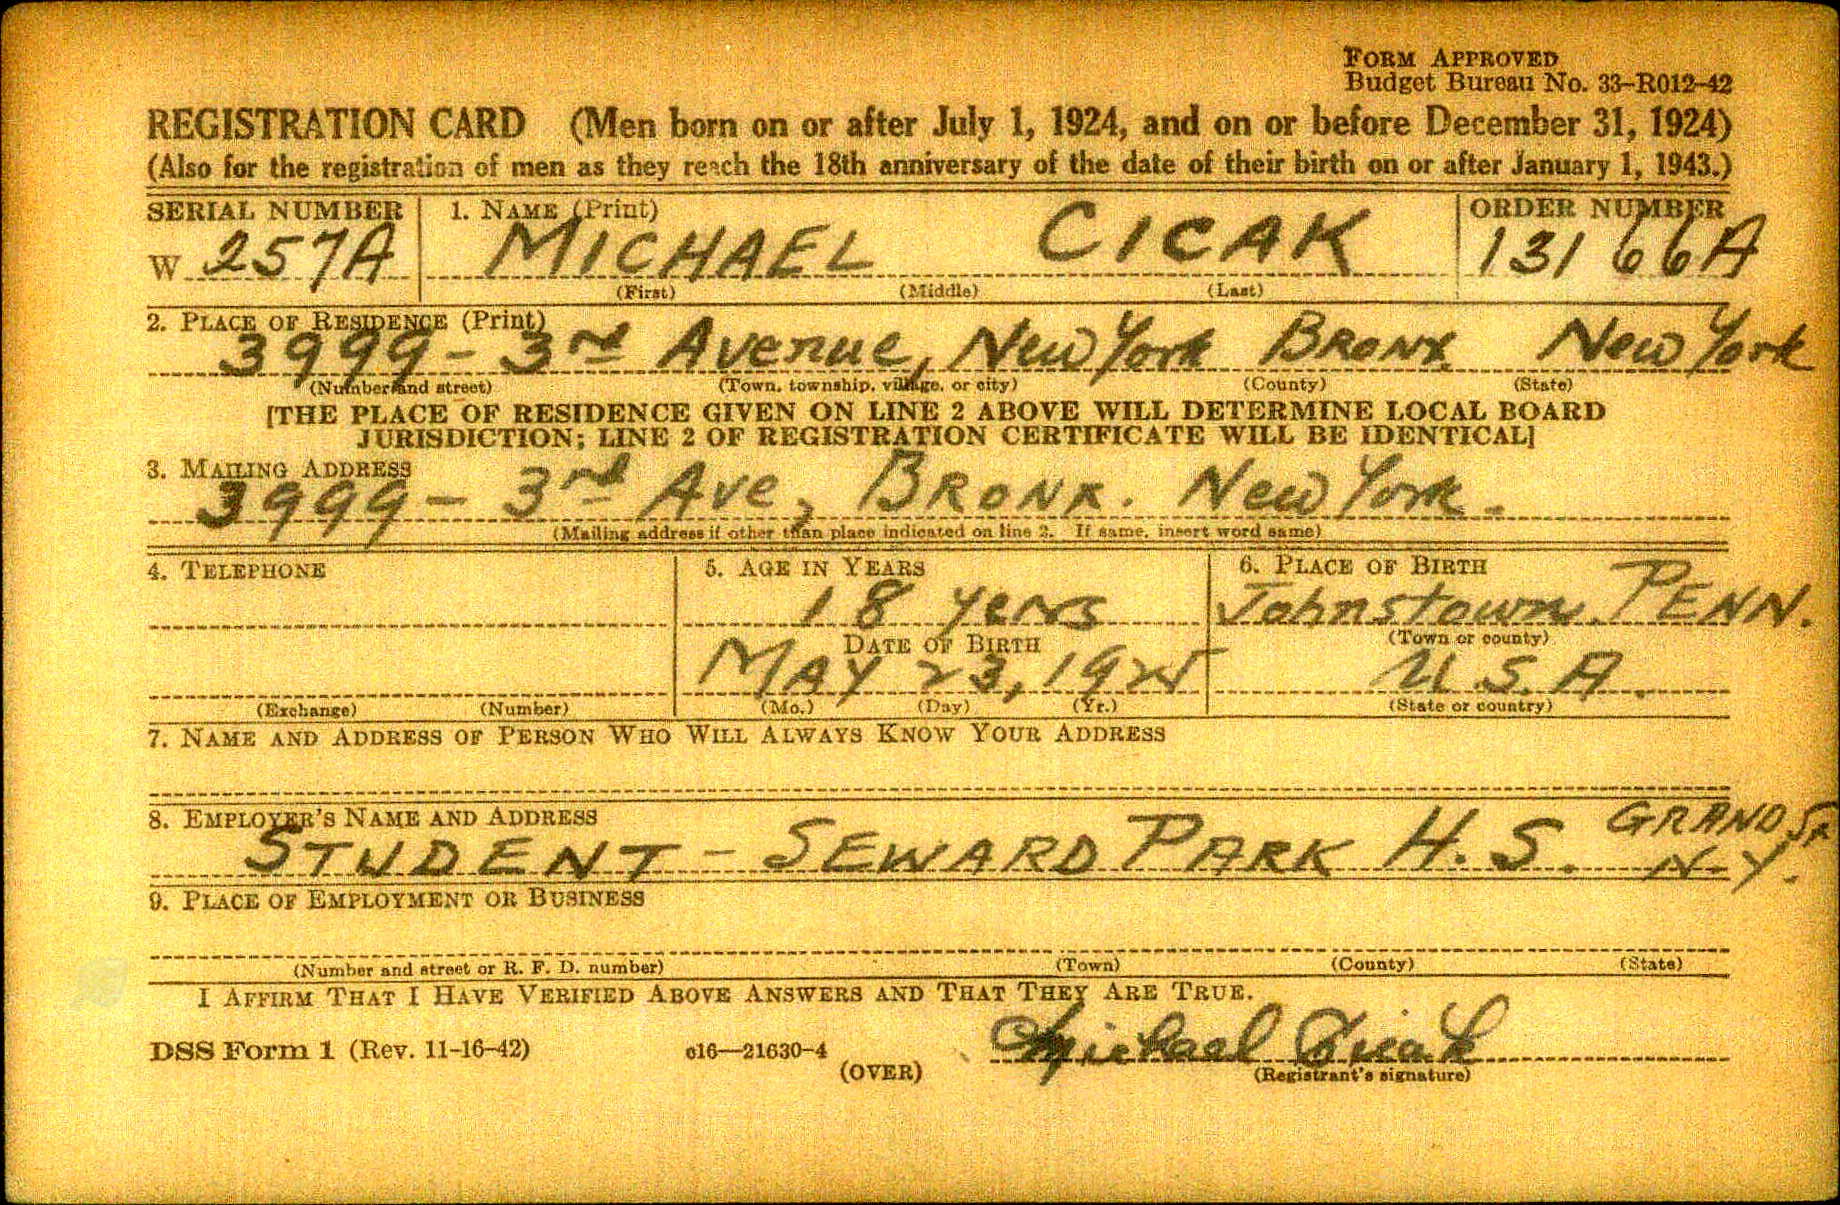 FORM APPROVED
Budget Bureau No. 33–R012–42
REGISTRATION CARD (Men born on or after July 1, 1924, and on or before December 31, 1924)
(Also for the registration of men as they reach the 18th anniversary of the date of their birth on or after January 1, 1943.)
SERIAL NUMBER 1. NAME (Print) ORDER NUMBER
W 257A MICHAEL CICAK 13166A
(First) (Middle) (Last)
2. PLACE OF RESIDENCE (Print)
3999 – 3rd Avenue, New York BRONX New York
(Number and street) (Town, township, village, or city) (County) (State)
[THE PLACE OF RESIDENCE GIVEN ON LINE 2 ABOVE WILL DETERMINE LOCAL BOARD
JURISDICTION; LINE 2 OF REGISTRATION CERTIFICATE WILL BE IDENTICAL]
3. MAILING ADDRESS
3999 – 3rd Ave, BRONX. New York.
(Mailing address if other than place indicated on line 2. If same, insert word same)
4. TELEPHONE 5. AGE IN YEARS 6. PLACE OF BIRTH
18 years Johnstown. PENN.
DATE OF BIRTH (Town or county)
MAY 23, 1925 U.S.A.
(Exchange) (Number) (Mo.) (Day) (Yr.) (State or country)
7. NAME AND ADDRESS OF PERSON WHO WILL ALWAYS KNOW YOUR ADDRESS
8. EMPLOYER'S NAME AND ADDRESS
STUDENT – SEWARD PARK H.S. GRAND ST
N.Y.
9. PLACE OF EMPLOYMENT OR BUSINESS
(Number and street or R. F. D. number) (Town) (County) (State)
I AFFIRM THAT I HAVE VERIFIED ABOVE ANSWERS AND THAT THEY ARE TRUE.
DSS Form 1 (Rev. 11-16-42) c16—21630-4 Michael Cicak
(OVER) (Registrant's signature)